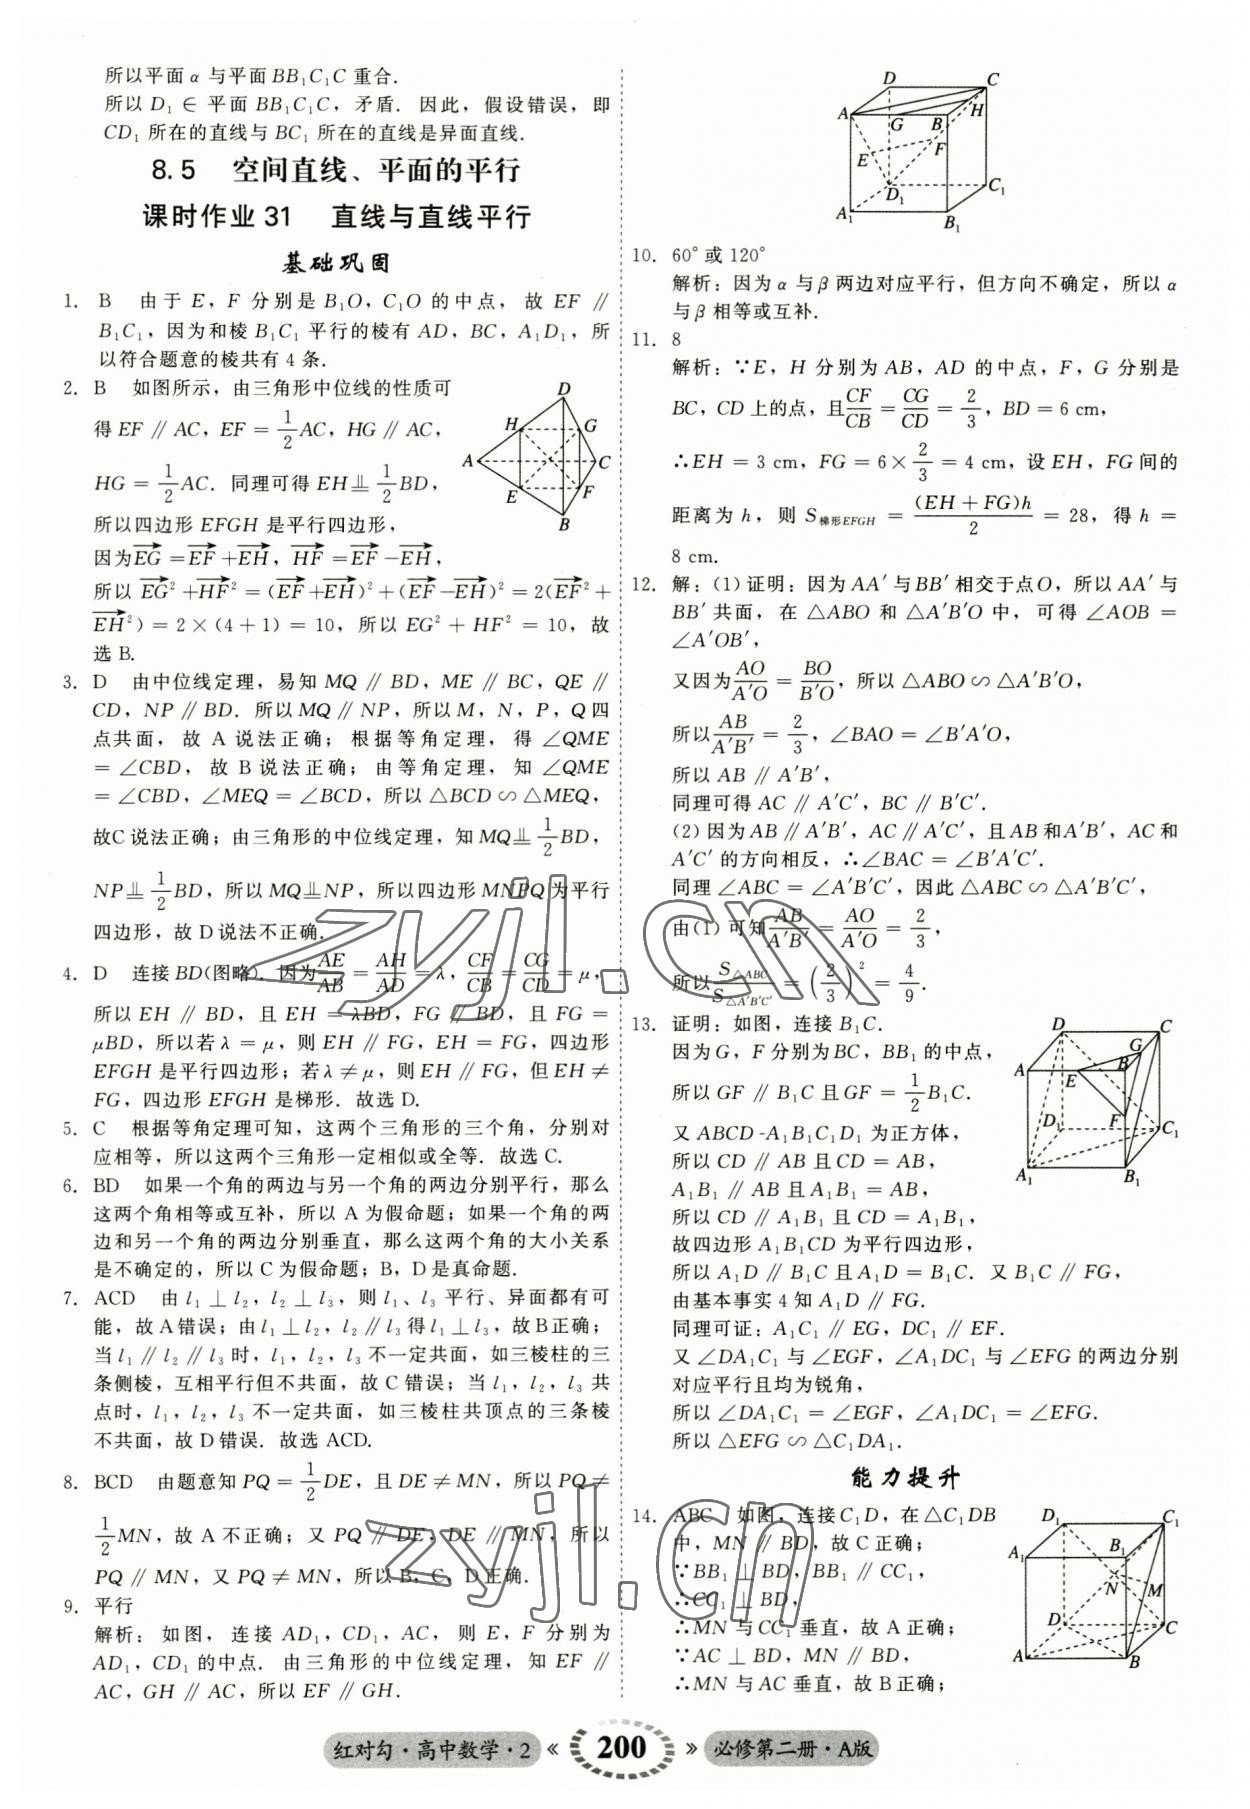 所以平面 α 与平面 BB₁C₁C 重合.
所以 D₁ ∈ 平面 BB₁C₁C，矛盾. 因此，假设错误，即
CD₁ 所在的直线与 BC₁ 所在的直线是异面直线.
8.5 空间直线、平面的平行
课时作业 31 直线与直线平行
基础巩固
1. B 由于 E，F 分别是 B₁O，C₁O 的中点，故 EF ∥
B₁C₁，因为和棱 B₁C₁ 平行的棱有 AD，BC，A₁D₁，所
以符合题意的棱共有 4 条.
2. B 如图所示，由三角形中位线的性质可
得 EF ∥ AC，EF = 1/2 AC，HG ∥ AC，
HG = 1/2 AC. 同理可得 EH ⥮ 1/2 BD，
所以四边形 EFGH 是平行四边形，
因为 EG→ = EF→ + EH→，HF→ = EF→ − EH→，
所以 EG→² + HF→² = (EF→ + EH→)² + (EF→ − EH→)² = 2(EF→² +
EH→²) = 2×(4+1) = 10，所以 EG² + HF² = 10，故
选 B.
D
H G
A C
E F
B
3. D 由中位线定理，易知 MQ ∥ BD，ME ∥ BC，QE ∥
CD，NP ∥ BD. 所以 MQ ∥ NP，所以 M，N，P，Q 四
点共面，故 A 说法正确；根据等角定理，得 ∠QME
= ∠CBD，故 B 说法正确；由等角定理，知 ∠QME
= ∠CBD，∠MEQ = ∠BCD，所以 △BCD ∽ △MEQ，
故C 说法正确；由三角形的中位线定理，知 MQ ⥮ 1/2 BD，
NP ⥮ 1/2 BD，所以 MQ ⥮ NP，所以四边形 MNPQ 为平行
四边形，故 D 说法不正确.
4. D 连接 BD(图略). 因为 AE/AB = AH/AD = λ，CF/CB = CG/CD = μ，
所以 EH ∥ BD，且 EH = λBD，FG ∥ BD，且 FG =
μBD，所以若 λ = μ，则 EH ∥ FG，EH = FG，四边形
EFGH 是平行四边形；若 λ ≠ μ，则 EH ∥ FG，但 EH ≠
FG，四边形 EFGH 是梯形. 故选 D.
5. C 根据等角定理可知，这两个三角形的三个角，分别对
应相等，所以这两个三角形一定相似或全等. 故选 C.
6. BD 如果一个角的两边与另一个角的两边分别平行，那么
这两个角相等或互补，所以 A 为假命题；如果一个角的两
边和另一个角的两边分别垂直，那么这两个角的大小关系
是不确定的，所以 C 为假命题；B，D 是真命题.
7. ACD 由 l₁ ⊥ l₂，l₂ ⊥ l₃，则 l₁、l₃ 平行、异面都有可
能，故 A 错误；由 l₁ ⊥ l₂，l₂ ∥ l₃ 得 l₁ ⊥ l₃，故 B 正确；
当 l₁ ∥ l₂ ∥ l₃ 时，l₁，l₂，l₃ 不一定共面，如三棱柱的三
条侧棱，互相平行但不共面，故 C 错误；当 l₁，l₂，l₃ 共
点时，l₁，l₂，l₃ 不一定共面，如三棱柱共顶点的三条棱
不共面，故 D 错误. 故选 ACD.
8. BCD 由题意知 PQ = 1/2 DE，且 DE ≠ MN，所以 PQ ≠
1/2 MN，故 A 不正确；又 PQ ∥ DE，DE ∥ MN，所以
PQ ∥ MN，又 PQ ≠ MN，所以 B，C，D 正确.
9. 平行
解析：如图，连接 AD₁，CD₁，AC，则 E，F 分别为
AD₁，CD₁ 的中点. 由三角形的中位线定理，知 EF ∥
AC，GH ∥ AC，所以 EF ∥ GH.
D C
A G B H
E F
D₁ C₁
A₁ B₁
10. 60°或 120°
解析：因为 α 与 β 两边对应平行，但方向不确定，所以 α
与 β 相等或互补.
11. 8
解析：∵E，H 分别为 AB，AD 的中点，F，G 分别是
BC，CD 上的点，且 CF/CB = CG/CD = 2/3，BD = 6 cm，
∴EH = 3 cm，FG = 6× 2/3 = 4 cm，设 EH，FG 间的
距离为 h，则 S梯形EFGH = (EH + FG)h/2 = 28，得 h =
8 cm.
12. 解：(1) 证明：因为 AA′ 与 BB′ 相交于点 O，所以 AA′ 与
BB′ 共面，在 △ABO 和 △A′B′O 中，可得 ∠AOB =
∠A′OB′，
又因为 AO/A′O = BO/B′O，所以 △ABO ∽ △A′B′O，
所以 AB/A′B′ = 2/3，∠BAO = ∠B′A′O，
所以 AB ∥ A′B′，
同理可得 AC ∥ A′C′，BC ∥ B′C′.
(2) 因为 AB ∥ A′B′，AC ∥ A′C′，且 AB 和 A′B′，AC 和
A′C′ 的方向相反，∴∠BAC = ∠B′A′C′.
同理 ∠ABC = ∠A′B′C′，因此 △ABC ∽ △A′B′C′，
由(1) 可知 AB/A′B′ = AO/A′O = 2/3，
所以 S△ABC/S△A′B′C′ = (2/3)² = 4/9.
13. 证明：如图，连接 B₁C.
因为 G，F 分别为 BC，BB₁ 的中点，
所以 GF ∥ B₁C 且 GF = 1/2 B₁C.
又 ABCD-A₁B₁C₁D₁ 为正方体，
所以 CD ∥ AB 且 CD = AB，
A₁B₁ ∥ AB 且 A₁B₁ = AB，
所以 CD ∥ A₁B₁ 且 CD = A₁B₁，
故四边形 A₁B₁CD 为平行四边形，
所以 A₁D ∥ B₁C 且 A₁D = B₁C. 又 B₁C ∥ FG，
由基本事实 4 知 A₁D ∥ FG.
同理可证：A₁C₁ ∥ EG，DC₁ ∥ EF.
又 ∠DA₁C₁ 与 ∠EGF，∠A₁DC₁ 与 ∠EFG 的两边分别
对应平行且均为锐角，
所以 ∠DA₁C₁ = ∠EGF，∠A₁DC₁ = ∠EFG.
所以 △EFG ∽ △C₁DA₁.
D C
G
A E B
D₁ F C₁
A₁ B₁
能力提升
14. ABC 如图，连接 C₁D，在 △C₁DB
中，MN ∥ BD，故 C 正确；
∵BB₁ ⊥ BD，BB₁ ∥ CC₁，
∴CC₁ ⊥ BD，
∴MN 与 CC₁ 垂直，故 A 正确；
∵AC ⊥ BD，MN ∥ BD，
∴MN 与 AC 垂直，故 B 正确；
D₁ C₁
A₁ B₁
N M
D C
A B
红对勾·高中数学·2 « 200 » 必修第二册·A版
zyjl.cn
zyjl.cn